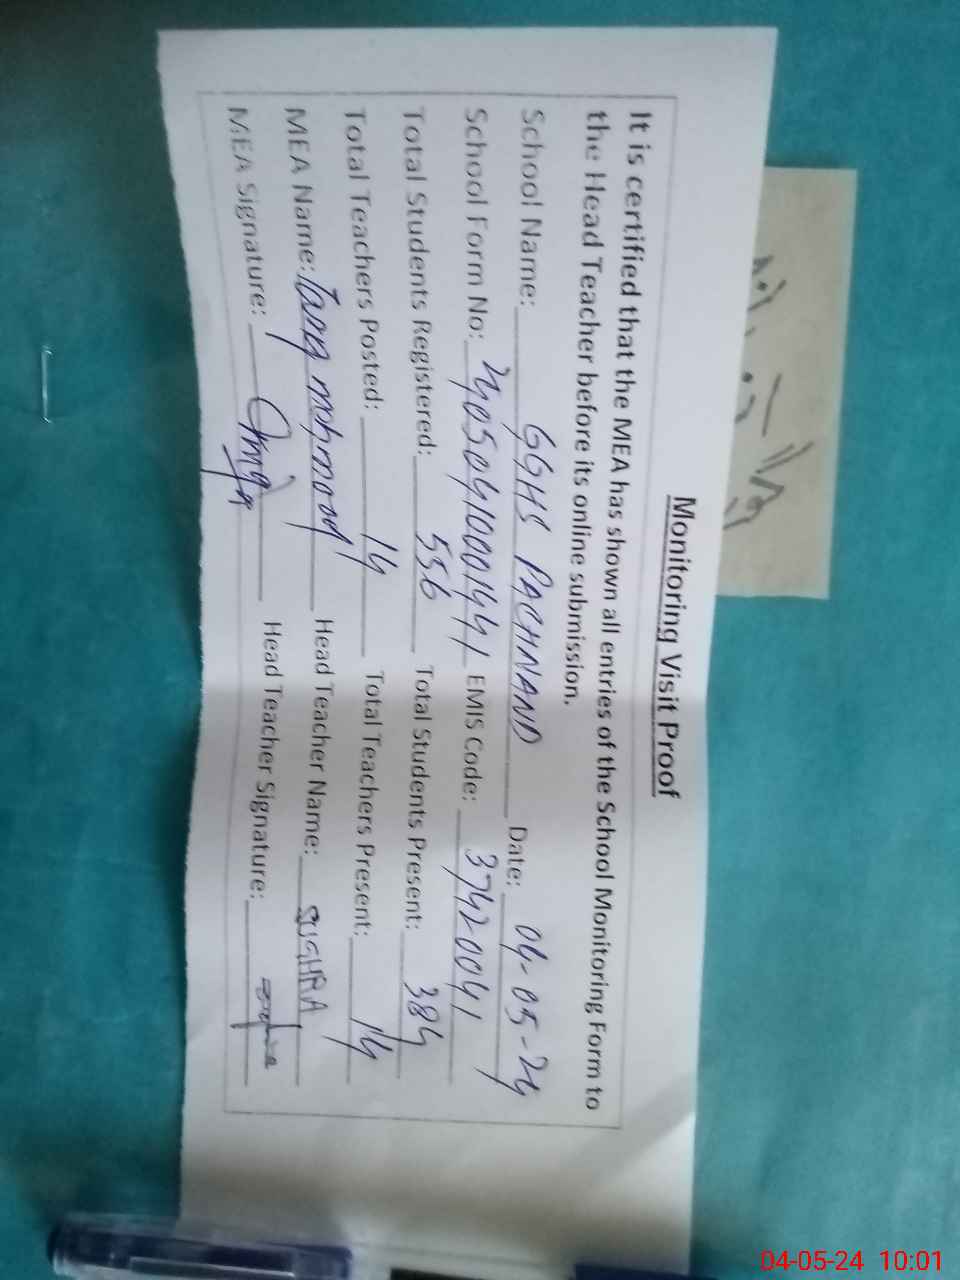 Monitoring Visit Proof
It is certified that the MEA has shown all entries of the School Monitoring Form to
the Head Teacher before its online submission.
School Name: GGHS PACHNAND Date: 04-05-24
School Form No: EMIS Code: 37420041
Total Students Registered: 556 Total Students Present: 384
Total Teachers Posted: 14 Total Teachers Present: 14
MEA Name: Tariq mehmood Head Teacher Name: SUGHRA
MEA Signature: Head Teacher Signature:
04-05-24 10:01